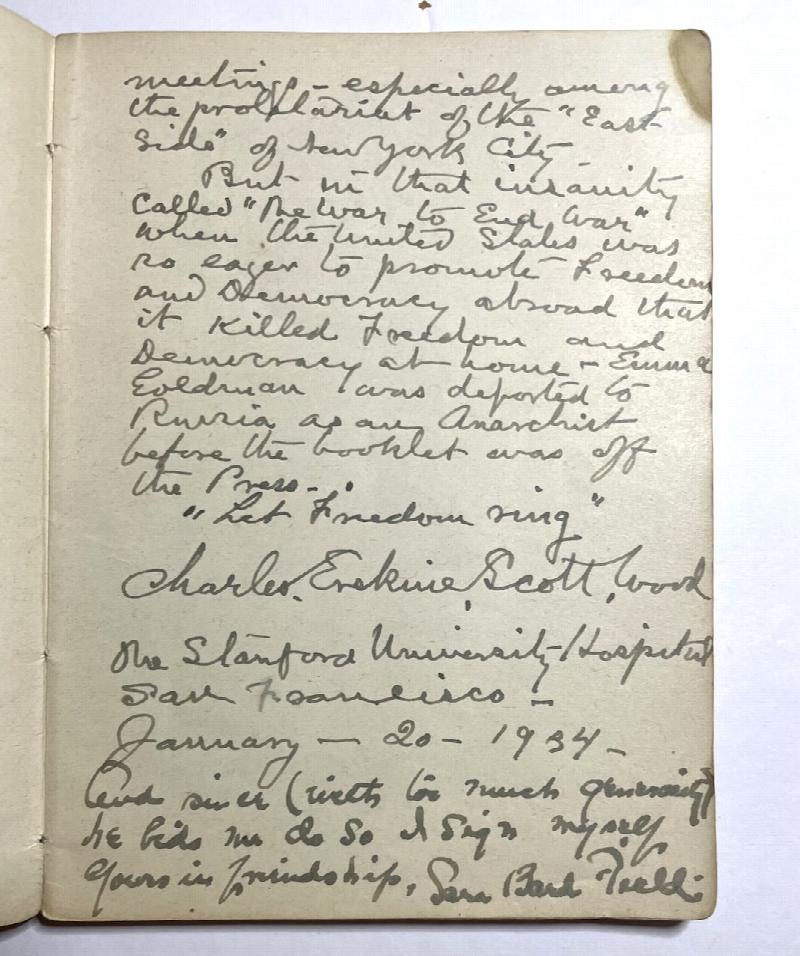 meetings - especially among
the proletariat of the "East
Side" of New York City -
But in that insanity
called "The War to End War"
when the United States was
so eager to promote Freedom
and Democracy abroad that
it killed Freedom and
Democracy at home - Emma
Goldman was deported to
Russia as an Anarchist
before the booklet was off
the Press -.
"Let Freedom ring"
Charles Erskine Scott Wood
The Stanford University Hospital
San Francisco -
January - 20 - 1934 -
And since (with too much generosity)
he bids me do so I sign myself
Yours in friendship, Sara Bard Field.